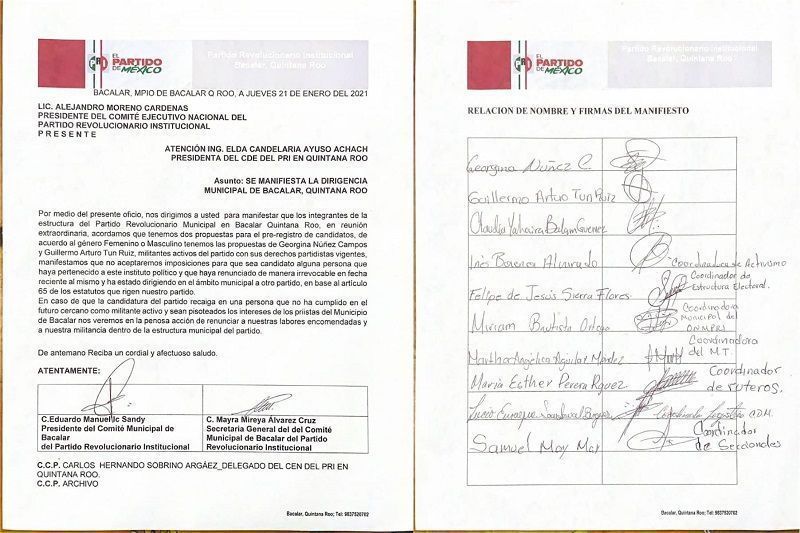 PRI
EL
PARTIDO
DE MÉXICO
Partido Revolucionario Institucional
Bacalar, Quintana Roo
BACALAR, MPIO DE BACALAR Q ROO, A JUEVES 21 DE ENERO DEL 2021
LIC. ALEJANDRO MORENO CARDENAS
PRESIDENTE DEL COMITÉ EJECUTIVO NACIONAL DEL
PARTIDO REVOLUCIONARIO INSTITUCIONAL
P R E S E N T E
ATENCIÓN ING. ELDA CANDELARIA AYUSO ACHACH
PRESIDENTA DEL CDE DEL PRI EN QUINTANA ROO
Asunto: SE MANIFIESTA LA DIRIGENCIA
MUNICIPAL DE BACALAR, QUINTANA ROO
Por medio del presente oficio, nos dirigimos a usted para manifestar que los integrantes de la
estructura del Partido Revolucionario Municipal en Bacalar Quintana Roo, en reunión
extraordinaria, acordamos que tenemos dos propuestas para el pre-registro de candidatos, de
acuerdo al género Femenino o Masculino tenemos las propuestas de Georgina Núñez Campos
y Guillermo Arturo Tun Ruiz, militantes activos del partido con sus derechos partidistas vigentes,
manifestamos que no aceptaremos imposiciones para que sea candidato alguna persona que
haya pertenecido a este instituto político y que haya renunciado de manera irrevocable en fecha
reciente al mismo y ha estado dirigiendo en el ámbito municipal a otro partido, en base al artículo
65 de los estatutos que rigen nuestro partido.
En caso de que la candidatura del partido recaiga en una persona que no ha cumplido en el
futuro cercano como militante activo y sean pisoteados los intereses de los priistas del Municipio
de Bacalar nos veremos en la penosa acción de renunciar a nuestras labores encomendadas y
a nuestra militancia dentro de la estructura municipal del partido.
De antemano Reciba un cordial y afectuoso saludo.
ATENTAMENTE:
C.Eduardo Manuel Ic Sandy
Presidente del Comité Municipal de
Bacalar
del Partido Revolucionario Institucional
C. Mayra Mireya Álvarez Cruz
Secretaria General del del Comité
Municipal de Bacalar del Partido
Revolucionario Institucional
C.C.P. CARLOS HERNANDO SOBRINO ARGÁEZ_DELEGADO DEL CEN DEL PRI EN
QUINTANA ROO.
C.C.P. ARCHIVO
Bacalar, Quintana Roo; Tel: 9837520702
PRI
EL
PARTIDO
DE MÉXICO
Partido Revolucionario Institucional
Bacalar, Quintana Roo
RELACION DE NOMBRE Y FIRMAS DEL MANIFIESTO
Georgina Núñez C.
Guillermo Arturo Tun Ruiz
Claudia Yahaira Balam
Inés Alvarado
Coordinadora de Activismo
Felipe de Jesús Sierra Flores.
Coordinador de
Estructura Electoral.
Miriam Bautista Ortega
Coordinadora
Municipal del
ONMPRI
Martha Angélica Aguilar Méndez
Coordinadora
del M.T.
María Esther Perera Rguez.
Coordinador
de ruteros.
Enrique Sandoval
Samuel Moy
Coordinador
de Seccionales
Bacalar, Quintana Roo; Tel: 9837520702